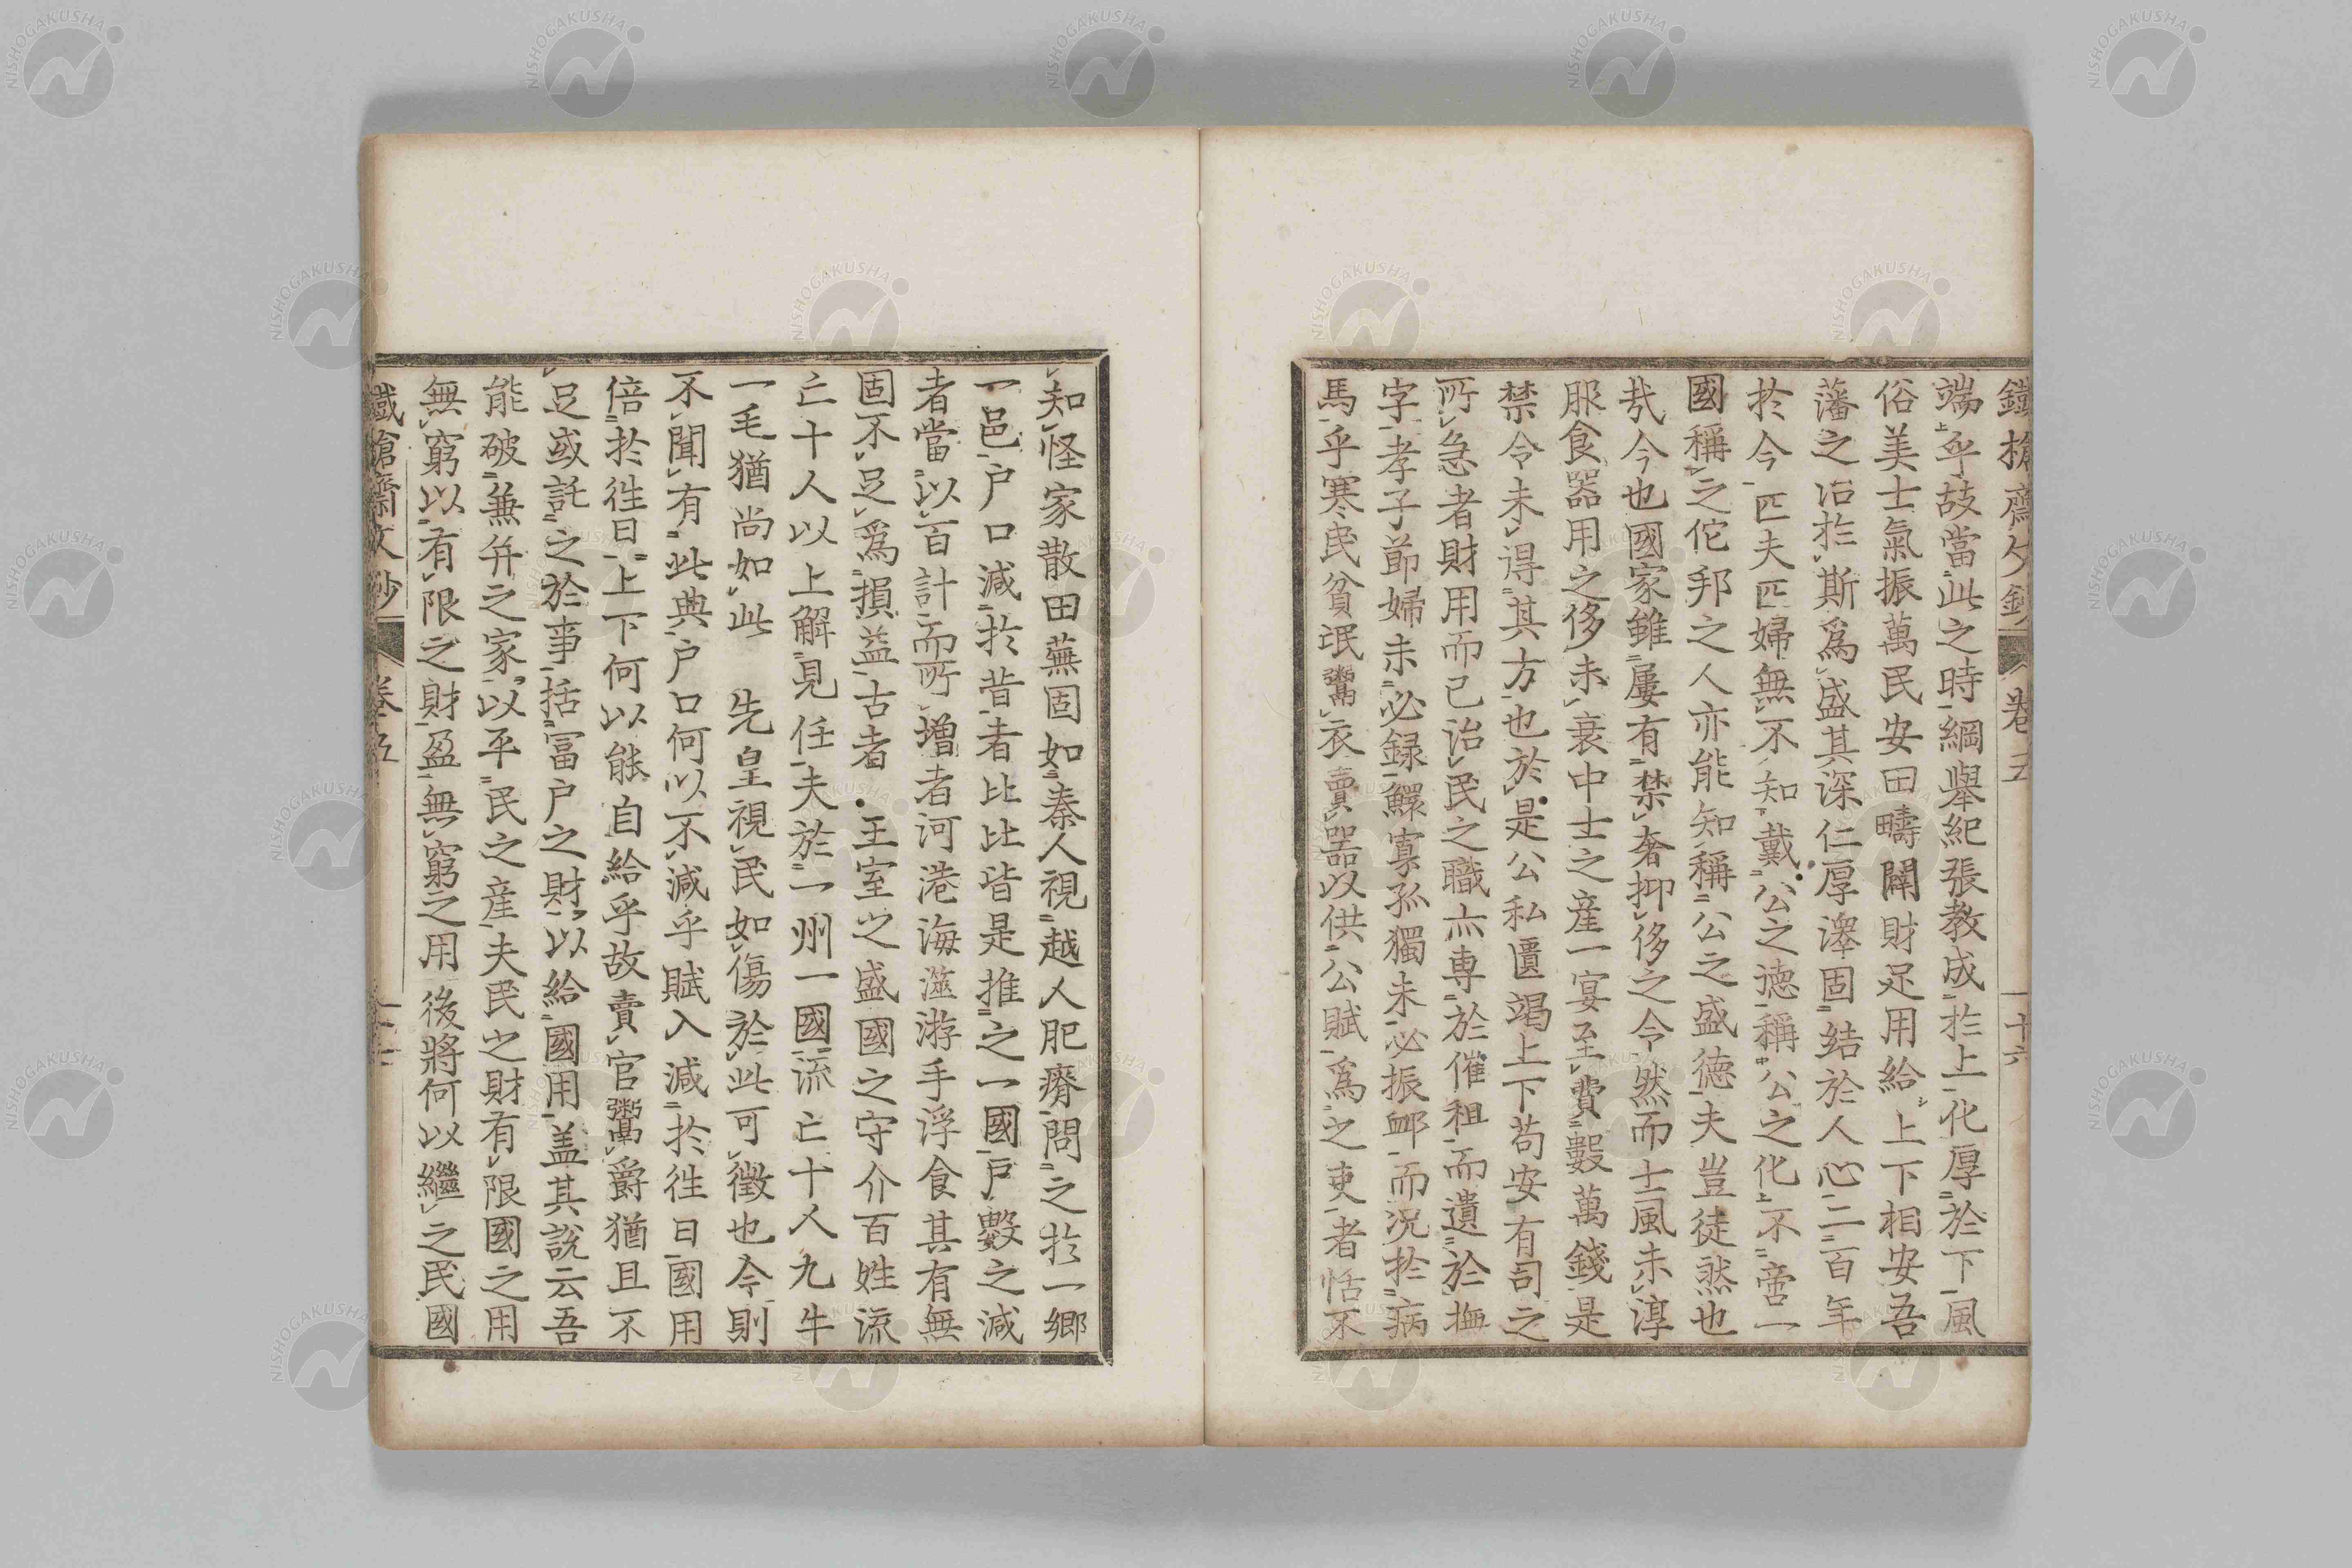 鐵槍齋文鈔 卷五 十六
端乎故當此之時綱舉紀張教成於上化厚於下風
俗美士氣振萬民安田疇闢財足用給上下相安吾
藩之治於斯爲盛其深仁厚澤固結於人心二百年
於今匹夫匹婦無不知戴公之德稱公之化不啻一
國稱之佗邦之人亦能知稱公之盛德夫豈徒然也
哉今也國家雖屢有禁奢抑侈之令然而士風未淳
服食器用之侈未衰中士之産一宴至費數萬錢是
禁令未得其方也於是公私匱竭上下苟安有司之
所急者財用而已治民之職亦專於催租而遺於撫
字孝子節婦未必録鰥寡孤獨未必振卹而況於病
馬乎寒民貧氓鬻衣賣器以供公賦爲之吏者恬不
知怪家散田蕪固如秦人視越人肥瘠問之於一鄉
一邑戸口減於昔者比比皆是推之一國戸數之減
者當以百計而所增者河港海澨游手浮食其有無
固不足爲損益古者王室之盛國之守介百姓流
亡十人以上解見任夫於一州一國流亡十人九牛
一毛猶尚如此 先皇視民如傷於此可徴也今則
不聞有此典戸口何以不減乎賦入減於徃日國用
倍於徃日上下何以能自給乎故賣官鬻爵猶且不
足或託之於事括冨戸之財以給國用盖其説云吾
能破兼并之家以平民之産夫民之財有限國之用
無窮以有限之財盈無窮之用後將何以繼之民國
鐵槍齋文鈔 卷五
NISHOGAKUSHA